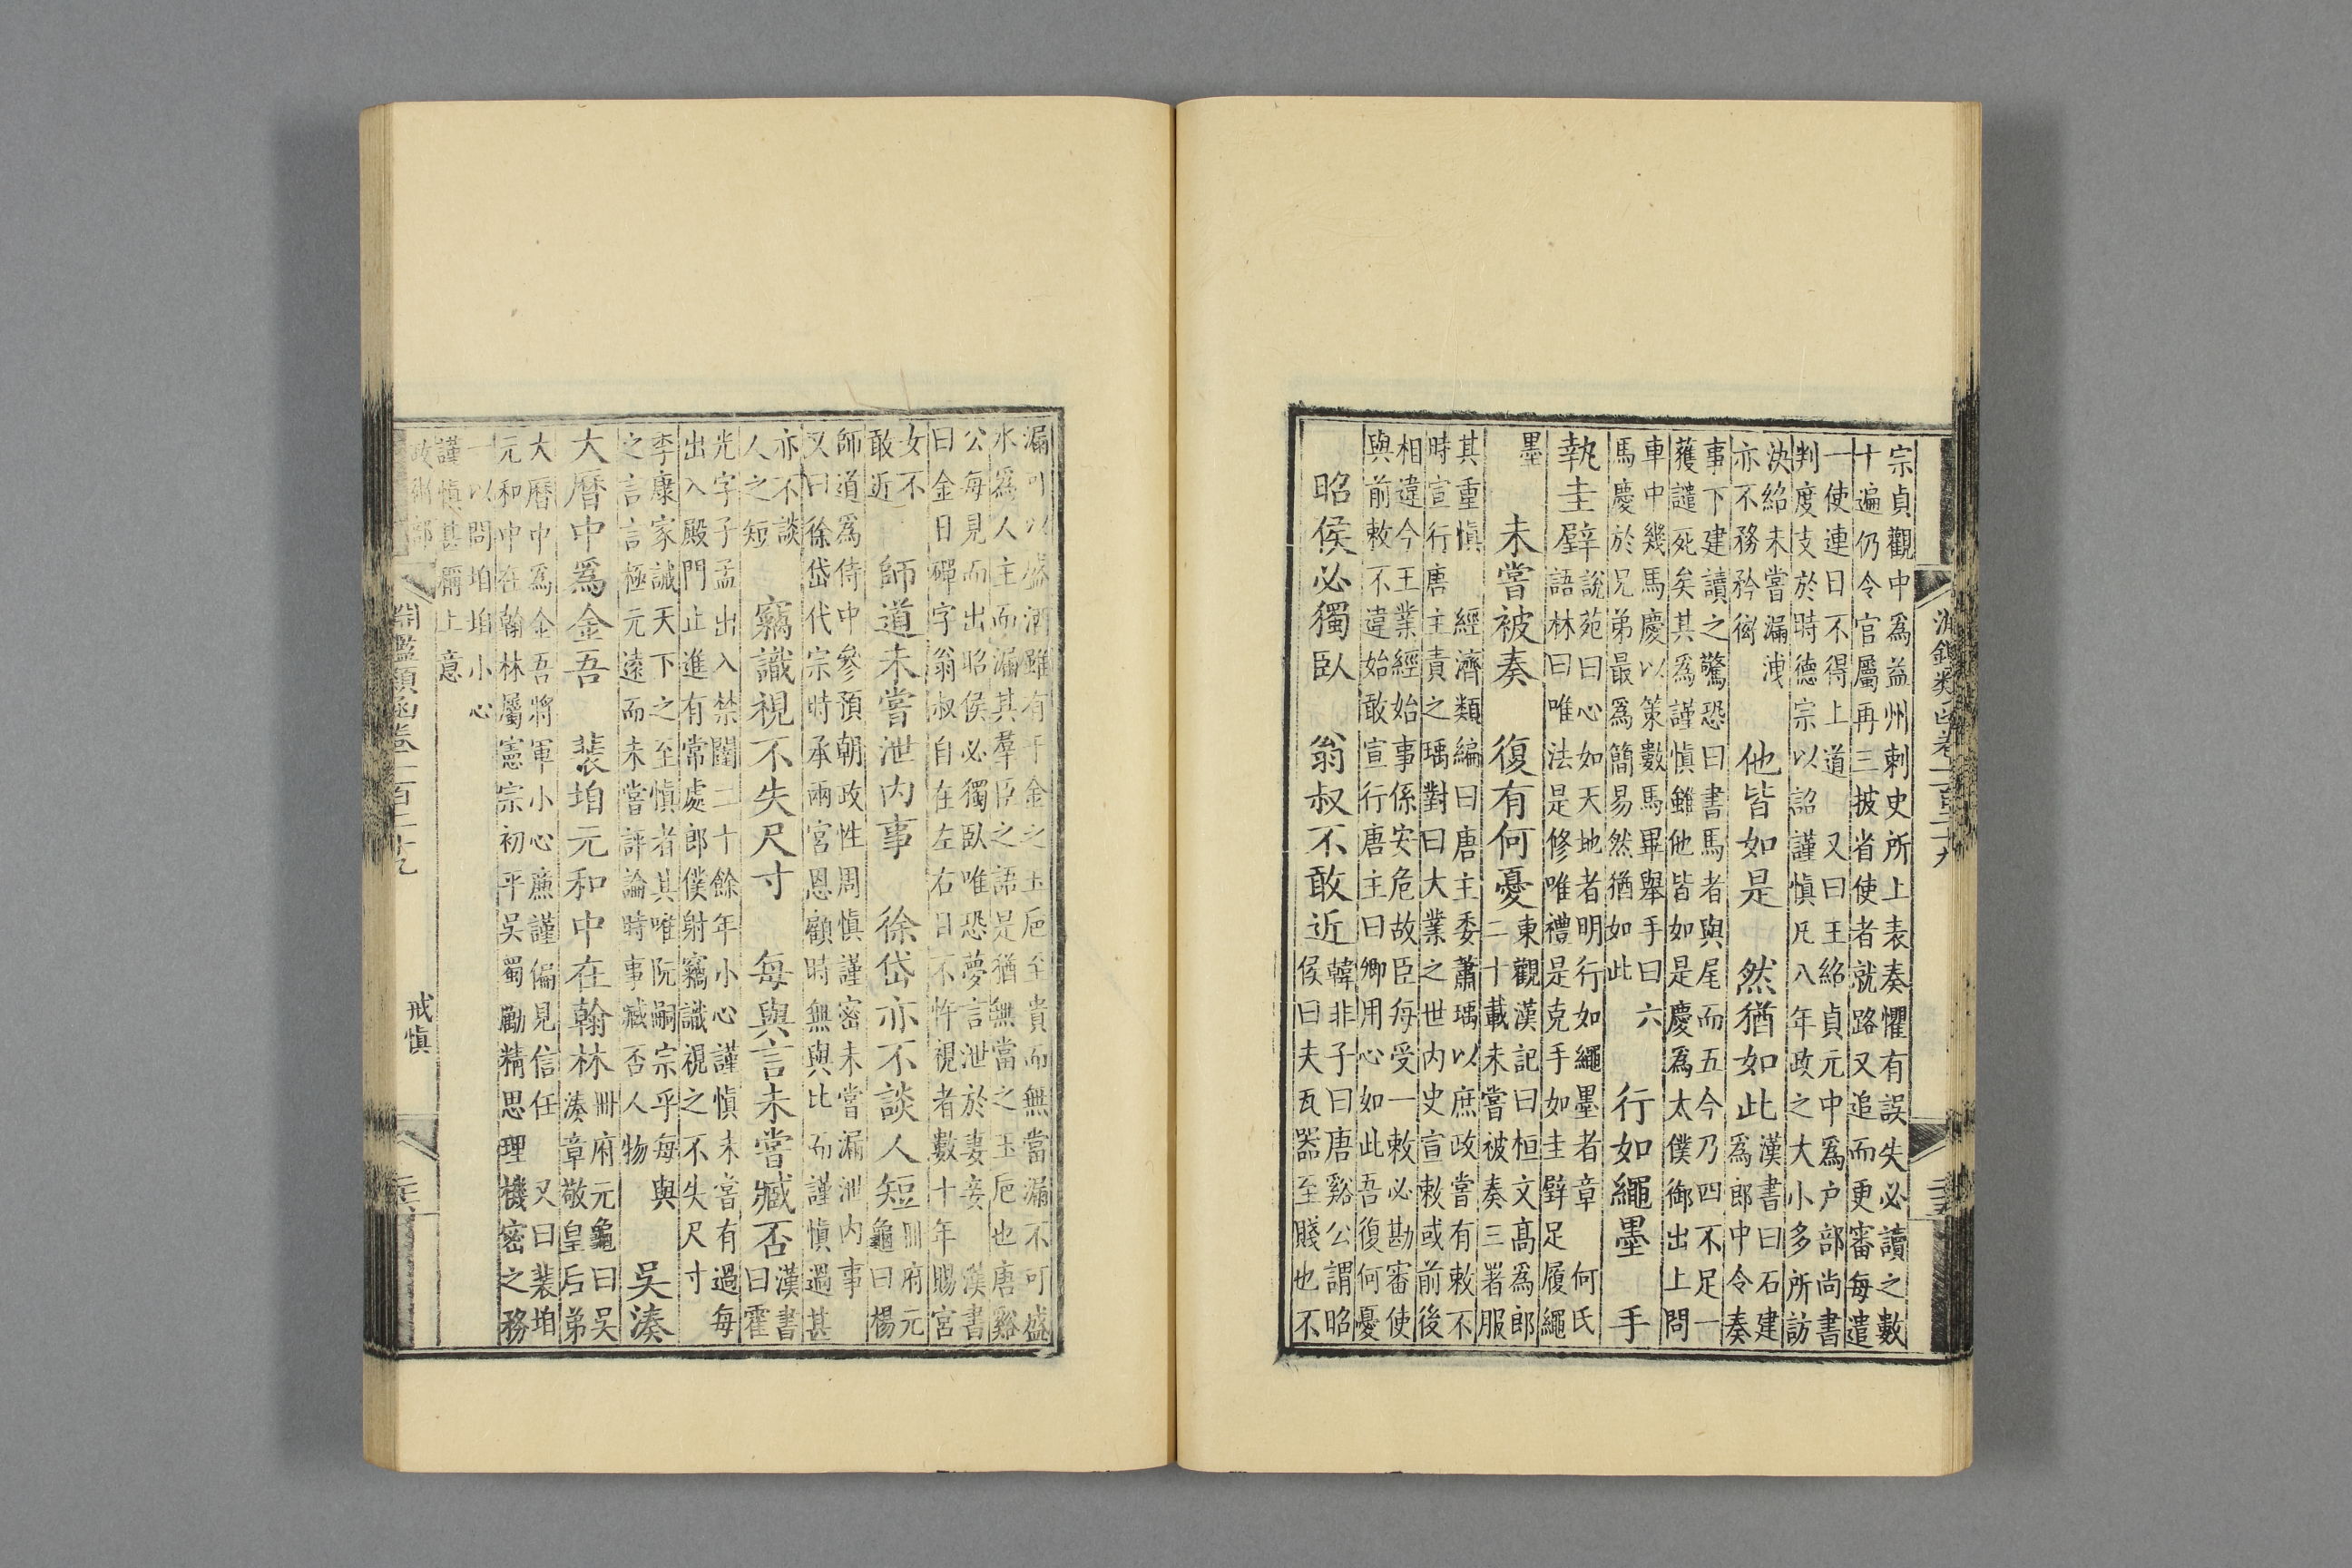 宗貞觀中爲益州刺史所上表奏懼有誤失必讀之數
十遍仍令官屬再三披省使者就路又追而更審每遣
一使連日不得上道　又曰王紹貞元中爲户部尚書
判度支於時德宗以詔謹慎凡八年政之大小多所訪
決紹未嘗漏洩
亦不務矜衒
他皆如是　然猶如此
漢書曰石建
爲郎中令奏
事下建讀之驚恐曰書馬者與尾而五今乃四不足一
獲譴死矣其爲謹慎雖他皆如是慶爲太僕御出上問
車中幾馬慶以策數馬畢舉手曰六
馬慶於兄弟最爲簡易然猶如此
行如繩墨　手
執圭璧
說苑曰心如天地者明行如繩墨者章　何氏
語林曰唯法是修唯禮是克手如圭璧足履繩
墨
未嘗被奏　復有何憂
東觀漢記曰桓文高爲郎
二十載未嘗被奏三署服
其重慎　經濟類編曰唐主委蕭瑀以庶政嘗有敕不
時宣行唐主責之瑀對曰大業之世内史宣敕或前後
相違今王業經始事係安危故臣每受一敕必勘審使
與前敕不違始敢宣行唐主曰卿用心如此吾復何憂
昭侯必獨臥　翁叔不敢近
韓非子曰唐谿公謂昭
侯曰夫瓦器至賤也不
漏可以盛酒雖有千金之玉巵至貴而無當漏不可盛
水爲人主而漏其羣臣之語是猶無當之玉巵也唐谿
公每見而出昭侯必獨臥唯恐夢言泄於妻妾　漢書
曰金日磾字翁叔自在左右目不忤視者數十年賜宮
女不
敢近
師道未嘗泄内事　徐岱亦不談人短
冊府元
龜曰楊
師道爲侍中參預朝政性周慎謹密未嘗漏泄内事
又曰徐岱代宗時承兩宮恩顧時無與比而謹慎過甚
亦不談
人之短
竊識視不失尺寸　每與言未嘗臧否
漢書
曰霍
光字子孟出入禁闥二十餘年小心謹慎未嘗有過每
出入殿門止進有常處郎僕射竊識視之不失尺寸
李康家誡天下之至慎者其唯阮嗣宗乎每與
之言言極元遠而未嘗評論時事臧否人物
吳湊
大曆中爲金吾　裴垍元和中在翰林
冊府元龜曰吳
湊章敬皇后弟
大曆中爲金吾將軍小心廉謹偏見信任　又曰裴垍
元和中在翰林屬憲宗初平吳蜀勵精思理機密之務
一以問垍垍小心
謹慎甚稱上意
淵鑑類函卷一百二十九
戒慎